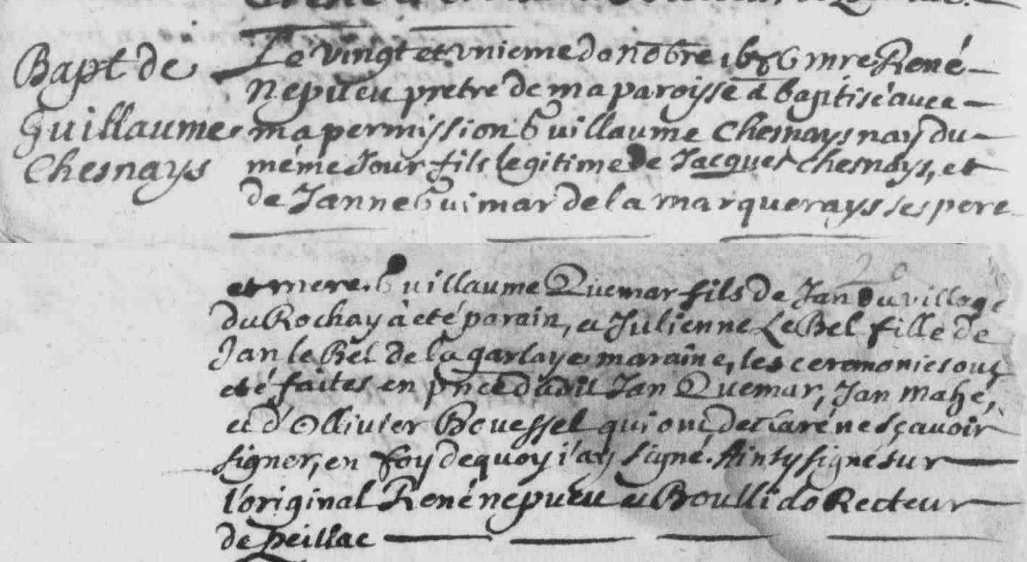 Bapt de
Guillaume
Chesnays
Le vingt et unieme da nobre 1686 mre René
Nepueu pretre de ma paroisse a baptisé avec
ma permission Guillaume Chesnays nay du
méme Jour fils legitime de Jacques Chesnays, et
de Janne Guimar de la marquerays ses pere
et mere. Guillaume Quemar fils de Jan du village
du Rochay à eté parain, et Julienne Le Bel fille de
Jan le Bel de la garlaye maraine, les ceremonies ont
eté faites en pnce dudit Jan Quemar, Jan mahé,
et d'Ollivier Bouessel qui ont declaré ne sçavoir
signer, en foy dequoy j'ay signé. Ainsy signé sur
l'original René nepueu et Boulli do Recteur
de peillac